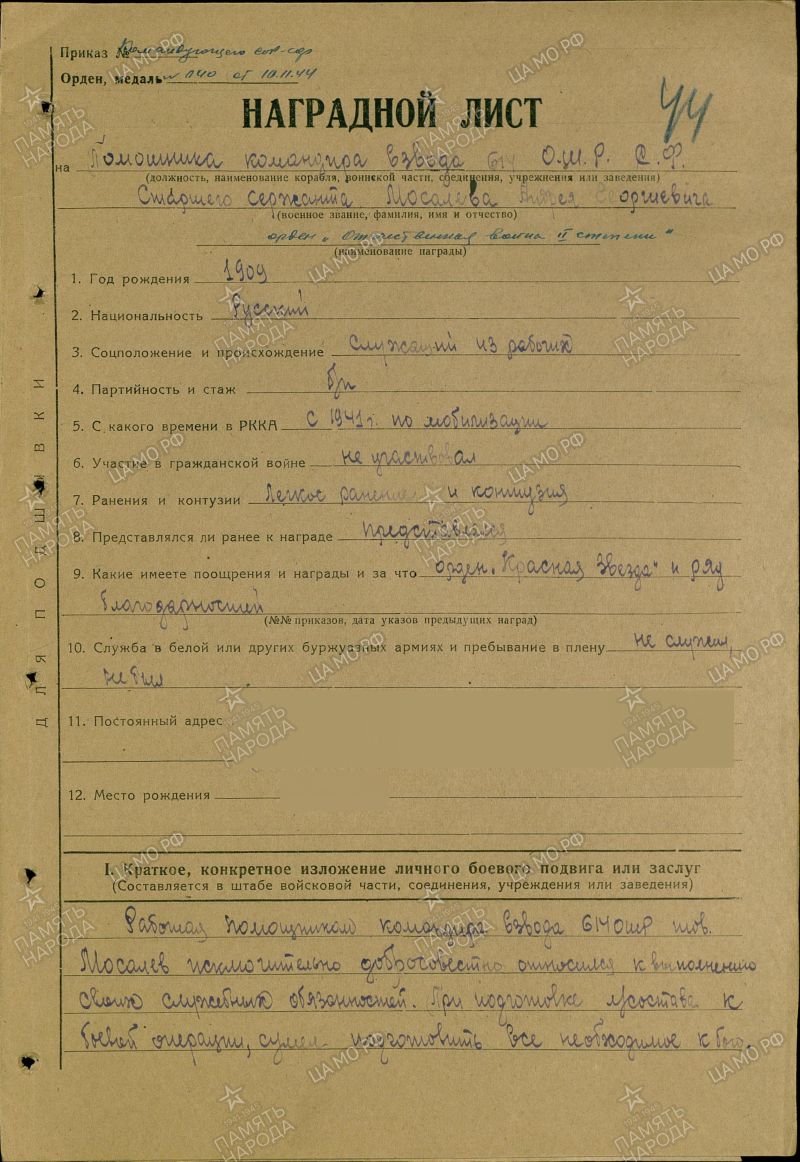 Приказ № Командующего
Орден, медаль № 040 от 10.11.44
НАГРАДНОЙ ЛИСТ
44
на Помошника командира взвода 614 О.Ш.Р. С.Ф.
(должность, наименование корабля, воинской части, соединения, учреждения или заведения)
Старшего сержанта Мосалева
(военное звание, фамилия, имя и отчество)
орден „Отечественная война II степени"
(наименование награды)
1. Год рождения 1909
2. Национальность Русский
3. Соцположение и происхождение служащий из рабочих
4. Партийность и стаж б/п
5. С какого времени в РККА с 1941 г. по мобилизации
6. Участие в гражданской войне не участвовал
7. Ранения и контузии Легкое ранение и контузия
8. Представлялся ли ранее к награде представлялся
9. Какие имеете поощрения и награды и за что орден „Красная Звезда" и ряд
благодарностей
(№№ приказов, дата указов предыдущих наград)
10. Служба в белой или других буржуазных армиях и пребывание в плену не служил,
не был
11. Постоянный адрес
12. Место рождения
ДЛЯ ПОДШИВКИ
I. Краткое, конкретное изложение личного боевого подвига или заслуг
(Составляется в штабе войсковой части, соединения, учреждения или заведения)
Работая помощником командира взвода 614 ОШР тов.
Мосалев исключительно добросовестно относился к выполнению
своих служебных обязанностей. При подготовке л/состава к
боевой операции, сумел подготовить все необходимое к бою.
ПАМЯТЬ НАРОДА
1941-1945
ЦА МО РФ